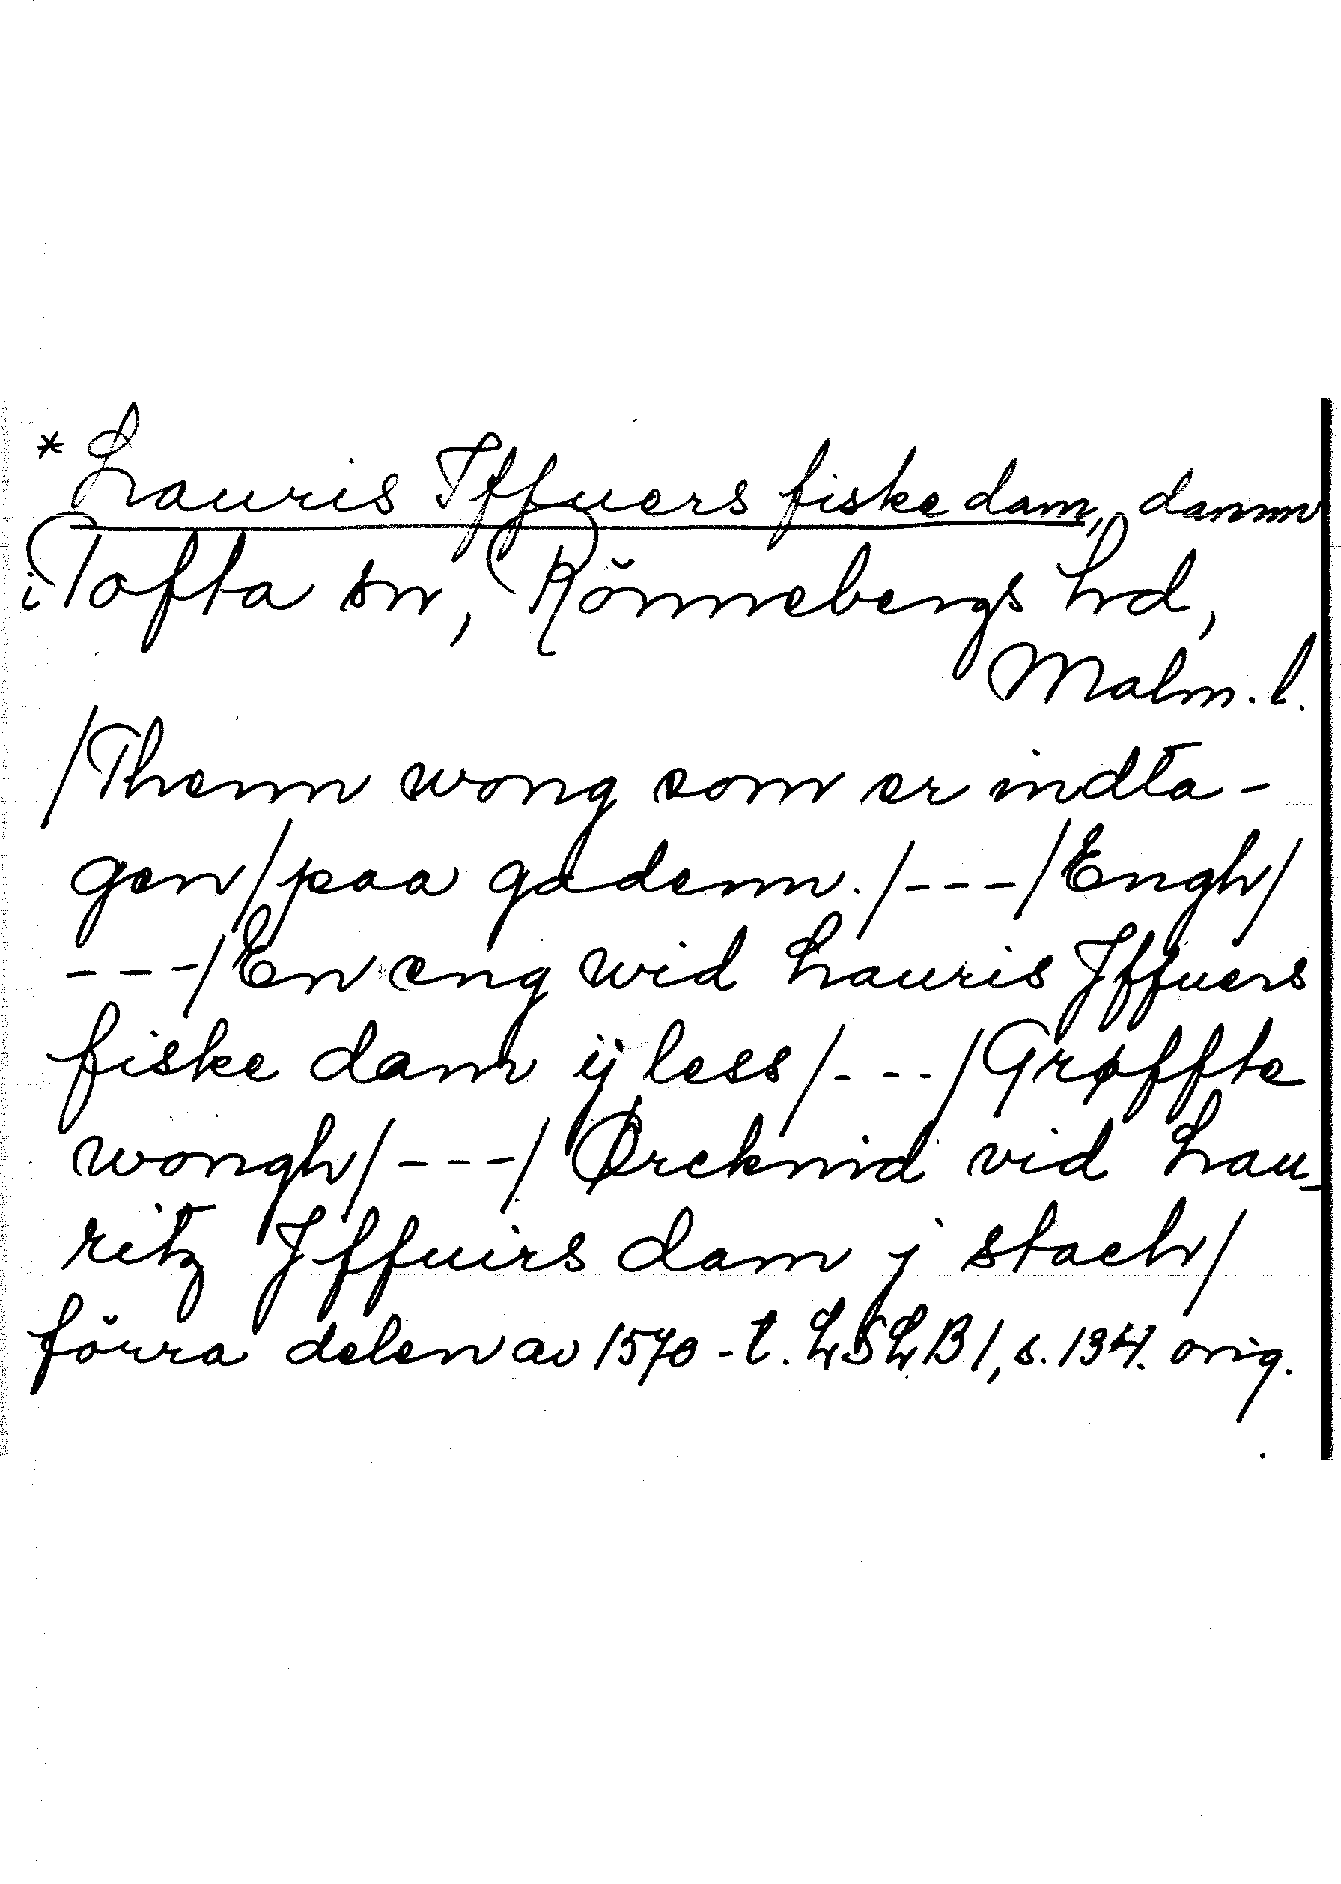 * Lauris Iffuers fiske dam, damm
i Tofta sn, Rönnebergs hd,
Malm. l.
/Thenn wong som er indta-
gen/paa gadenn./---/Engh/
---/En eng wid Lauris Iffuers
fiske dam ij less/---/Grøffte
wongh/---/Ørcknid vid Lau-
ritz Iffuirs dam j stach/
förra delen av 1570-t. LSLB1, s. 134. orig.